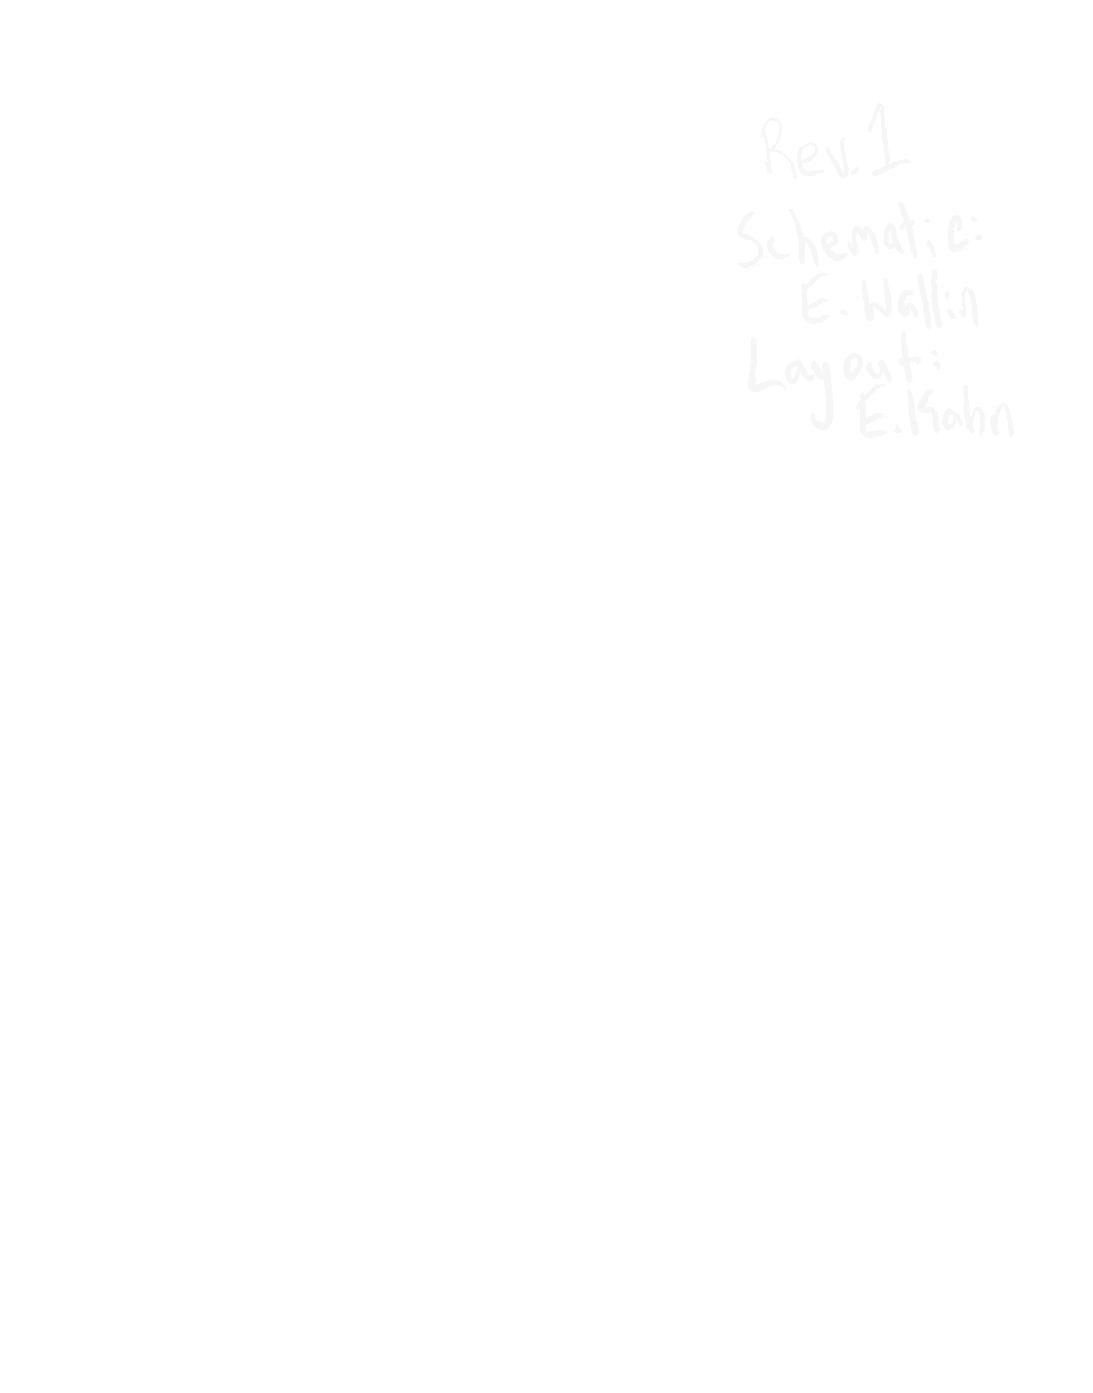 Rev. 1
Schematic:
E. Wallin
Layout:
E. Kahn